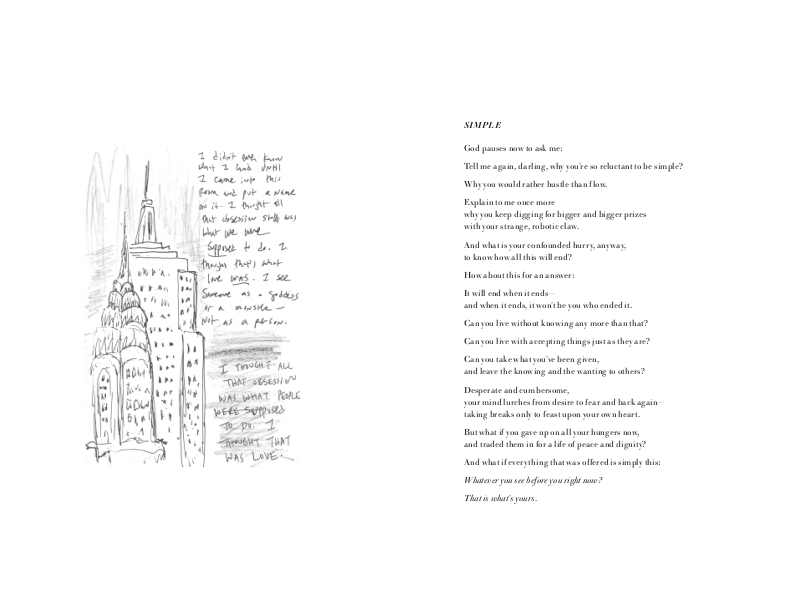 I didn't even know
what I had until
I came into this
Room and put a name
on it. I thought all
that obsession stuff was
what we were
Supposed to do. I
thought that's what
love WAS. I see
Someone as a goddess
or a monster—
Not as a person.
I THOUGHT ALL
THAT OBSESSION
WAS WHAT PEOPLE
WERE SUPPOSED
TO DO. I
THOUGHT THAT
WAS LOVE.
SIMPLE
God pauses now to ask me:
Tell me again, darling, why you're so reluctant to be simple?
Why you would rather hustle than flow.
Explain to me once more
why you keep digging for bigger and bigger prizes
with your strange, robotic claw.
And what is your confounded hurry, anyway,
to know how all this will end?
How about this for an answer:
It will end when it ends—
and when it ends, it won't be you who ended it.
Can you live without knowing any more than that?
Can you live with accepting things just as they are?
Can you take what you've been given,
and leave the knowing and the wanting to others?
Desperate and cumbersome,
your mind lurches from desire to fear and back again—
taking breaks only to feast upon your own heart.
But what if you gave up on all your hungers now,
and traded them in for a life of peace and dignity?
And what if everything that was offered is simply this:
Whatever you see before you right now?
That is what's yours.